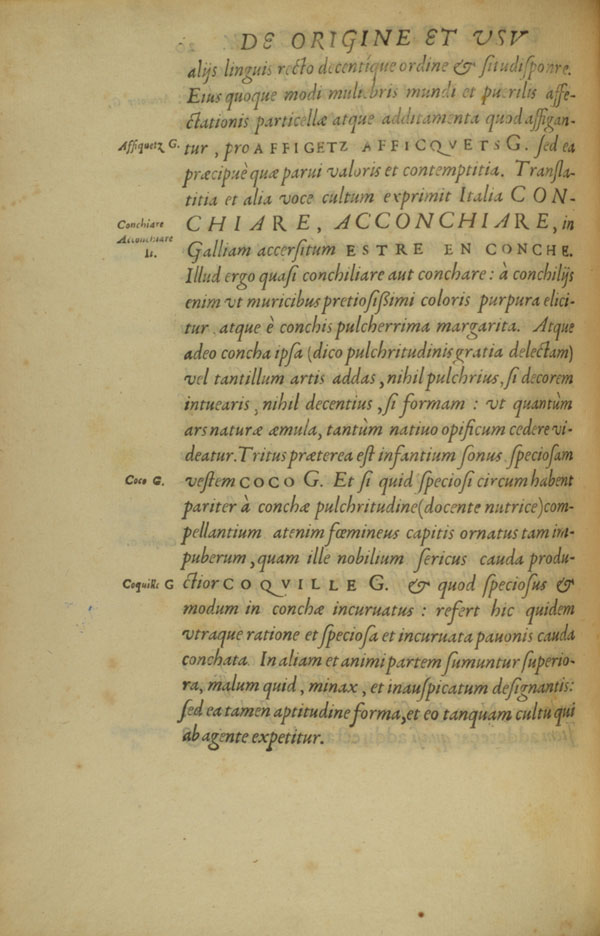 DE ORIGINE ET VSV
alijs linguis recto decentique ordine & situ disponre.
Eius quoque modi muliebris mundi et puerilis affe-
ctationis particellæ atque additamenta quod affigan-
Affiquetz G.
tur, pro AFFIGETZ AFFICQVETS G. sed ea
præcipuè quæ parui valoris et contemptitia. Transla-
titia et alia voce cultum exprimit Italia CON-
Conchiare
Acconchiare
It.
CHIARE, ACCONCHIARE, in
Galliam accersitum ESTRE EN CONCHE.
Illud ergo quasi conchiliare aut conchare: à conchilijs
enim vt muricibus pretiosißimi coloris purpura elici-
tur atque è conchis pulcherrima margarita. Atque
adeo concha ipsa (dico pulchritudinis gratia delectam)
vel tantillum artis addas, nihil pulchrius, si decorem
intuearis, nihil decentius, si formam: vt quantùm
ars naturæ æmula, tantùm natiuo opificum cedere vi-
deatur. Tritus præterea est infantium sonus speciosam
Coco G.
vestem COCO G. Et si quid speciosi circum habent
pariter à conchæ pulchritudine (docente nutrice) com-
pellantium atenim fœmineus capitis ornatus tam im-
puberum, quam ille nobilium sericus cauda produ-
Coquille G
ctior COQVILLE G. & quod speciosus &
modum in conchæ incuruatus: refert hic quidem
vtraque ratione et speciosa et incuruata pauonis cauda
conchata. In aliam et animi partem sumuntur superio-
ra, malum quid, minax, et inauspicatum designantis:
sed ea tamen aptitudine forma, et eo tanquam cultu qui
ab agente expetitur.